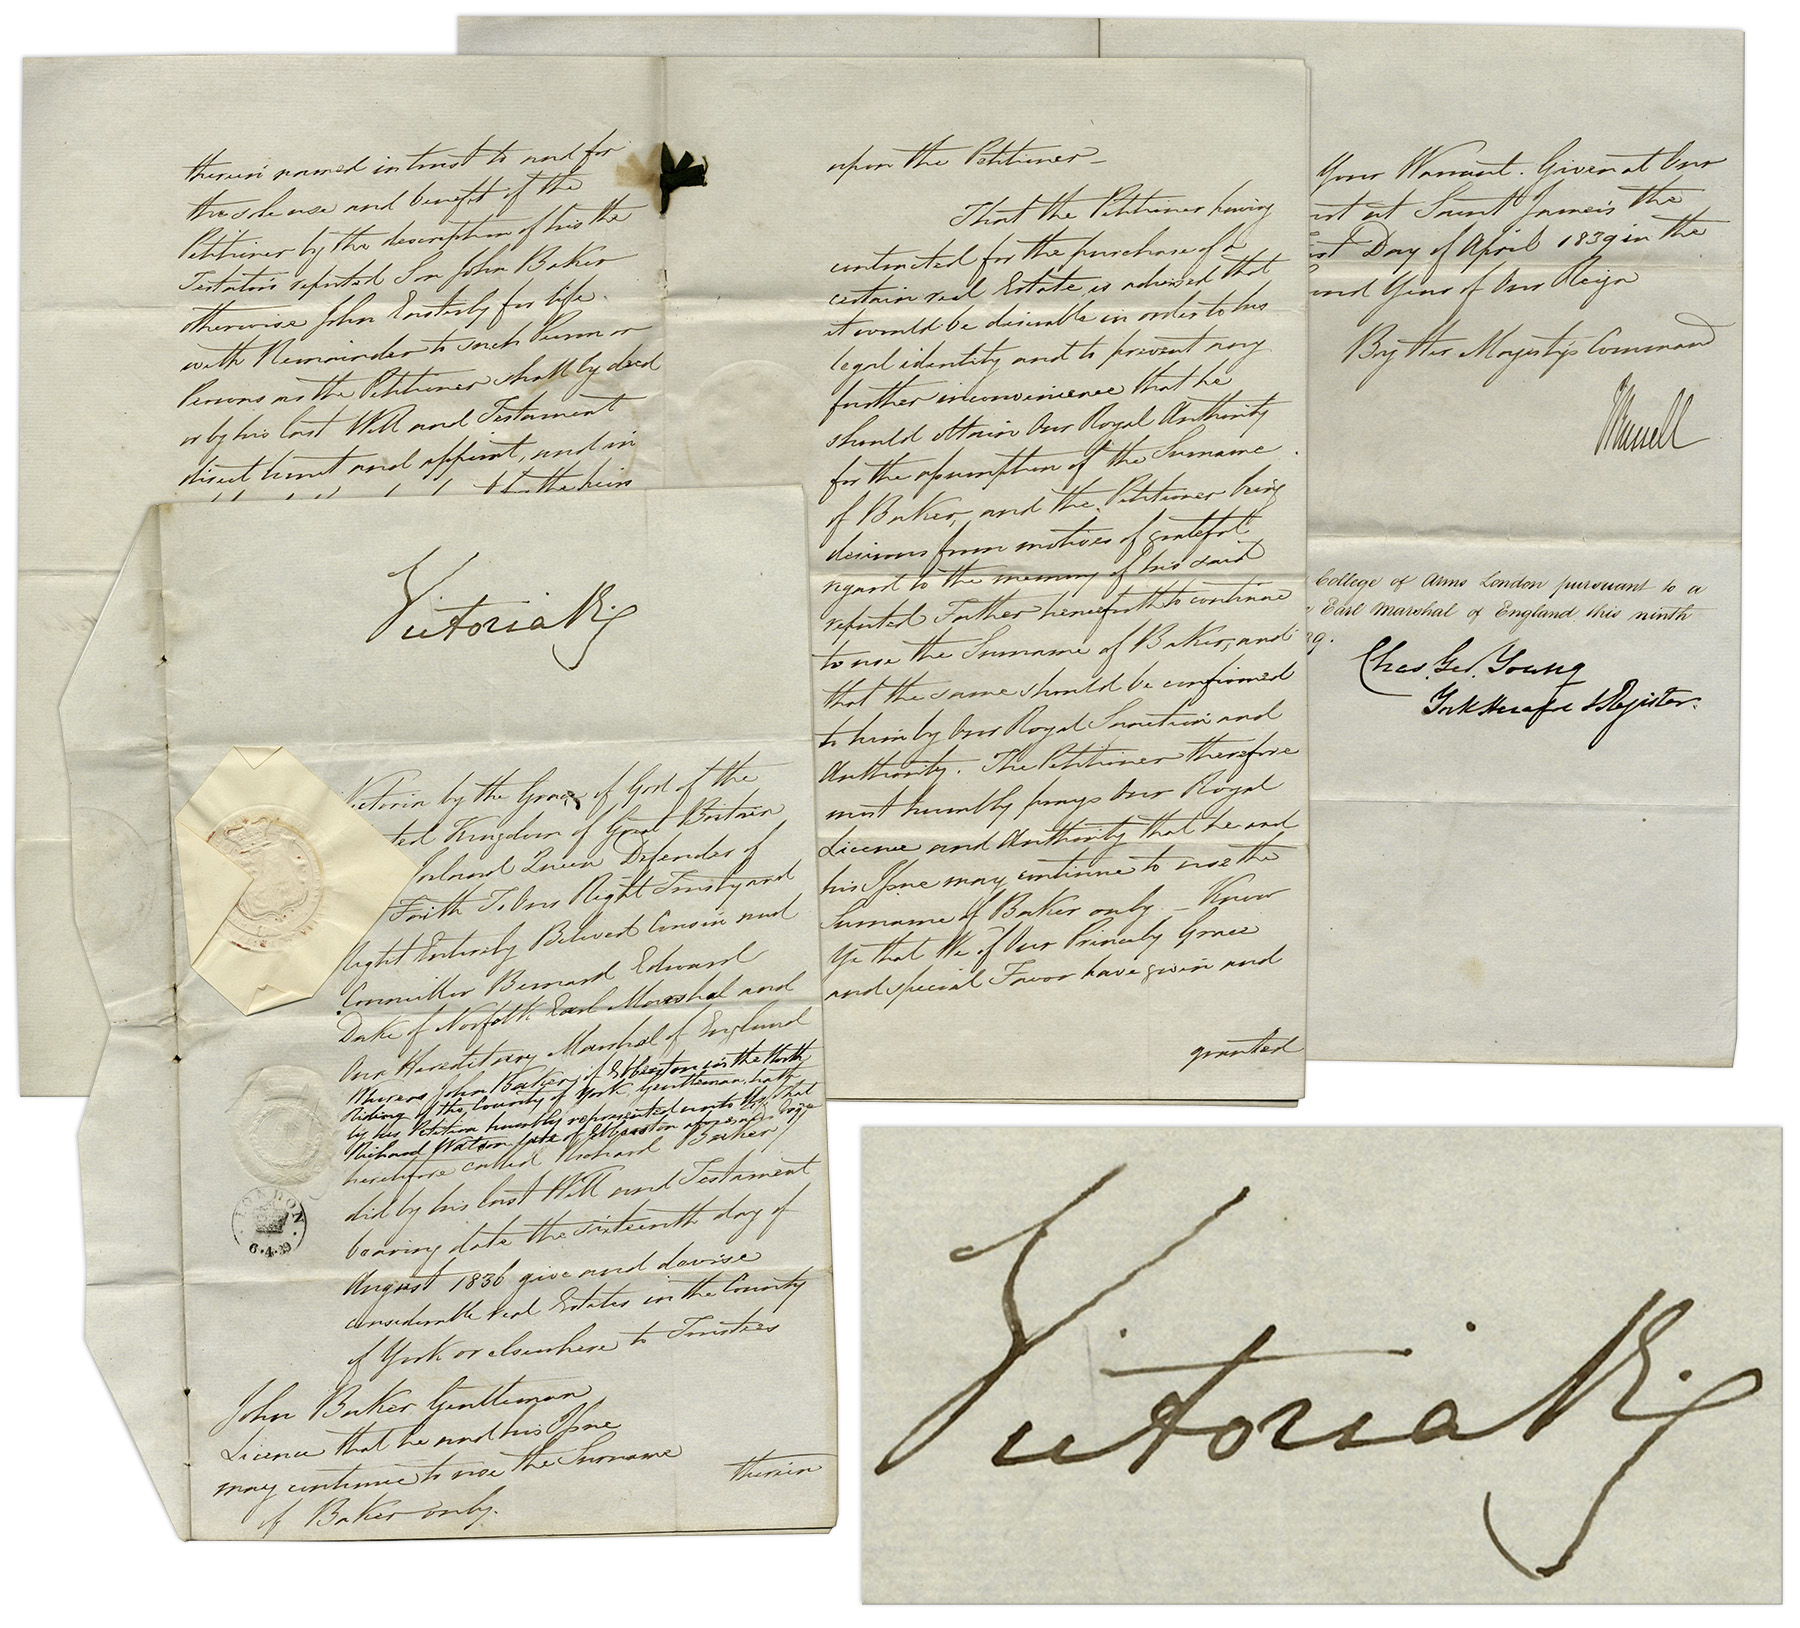 Victoria R
Victoria by the Grace of God of the
ted Kingdom of Great Britain
Ireland Queen Defender of
Faith To Our Right Trusty and
Right Entirely Beloved Cousin and
Councillor Bernard Edward
Duke of Norfolk Earl Marshal and
Our Hereditary Marshal of England
Whereas John Baker of Ebberston in the North
Riding of the County of York, Gentleman, hath
by his Petition humbly represented unto Us, That
Richard Watson late of Ebberston aforesaid
heretofore called Richard Baker
did by his last Will and Testament
bearing date the sixteenth day of
August 1836 give and devise
considerable real Estates in the County
of York or elsewhere to Trustees
John Baker Gentleman
Licence that he and his Issue
may continue to use the Surname
of Baker only.
therein
LONDON
6.4.39
therein named in trust to and for
the sole use and benefit of the
Petitioner by the description of his the
Testator's reputed Son John Baker
otherwise John Easterby for life.
with Remainder to such Person or
Persons as the Petitioner shall by deed
or by his last Will and Testament
direct limit and appoint, and in
the heirs
upon the Petitioner_
That the Petitioner having
contracted for the purchase of a
certain real Estate is advised that
it would be desirable in order to his
legal identity and to prevent any
further inconvenience that he
should obtain Our Royal Authority
for the assumption of the Surname
of Baker, and the Petitioner being
desirous from motives of grateful
regard to the memory of his said
reputed Father henceforth to continue
to use the Surname of Baker, and
that the same should be confirmed
to him by Our Royal Sanction and
Authority. The Petitioner therefore
most humbly prays Our Royal
Licence and Authority that he and
his Issue may continue to use the
Surname of Baker only _ Know
Ye that We of Our Princely Grace
and special Favor have given and
granted
Your Warrant. Given at Our
rt at Saint James's the
irst Day of April 1839 in the
cond Year of Our Reign
By Her Majesty's Command
JRussell
College of Arms London pursuant to a
Earl Marshal of England this ninth
39.
Chas. Geo. Young
York Herald & Register.
Victoria R